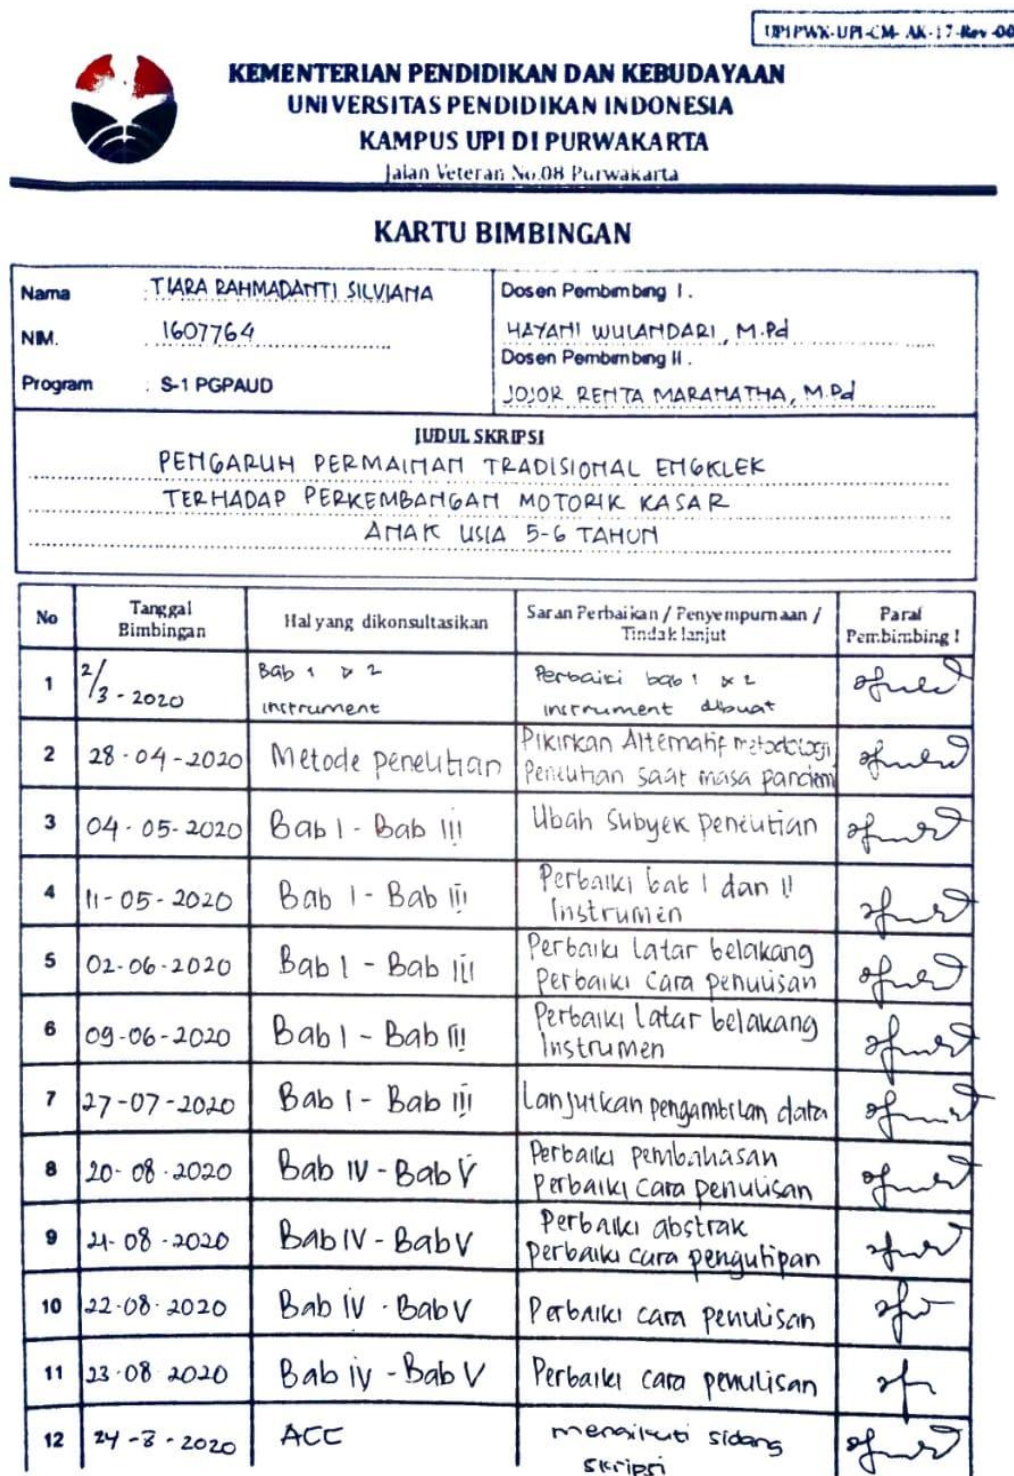 UPI PWK-UPI-CM- AK-17-Rev-00
KEMENTERIAN PENDIDIKAN DAN KEBUDAYAAN
UNIVERSITAS PENDIDIKAN INDONESIA
KAMPUS UPI DI PURWAKARTA
Jalan Veteran No.08 Purwakarta
KARTU BIMBINGAN
Nama : TIARA RAHMADANTI SILVIANA
NIM. : 1607764
Program : S-1 PGPAUD
Dosen Pembimbing I.
HAYANI WULANDARI, M.Pd
Dosen Pembimbing II.
JOJOR RENTA MARANATHA, M.Pd
JUDUL SKRIPSI
PENGARUH PERMAINAN TRADISIONAL ENGKLEK
TERHADAP PERKEMBANGAN MOTORIK KASAR
ANAK USIA 5-6 TAHUN
No
Tanggal
Bimbingan
Hal yang dikonsultasikan
Saran Perbaikan / Penyempurnaan /
Tindak lanjut
Paraf
Pembimbing I
1
2/3 - 2020
Bab 1 & 2
instrument
Perbaiki bab 1 & 2
instrument dibuat
2
28-04-2020
Metode penelitian
Pikirkan Alternatif metodologi
Penelitian saat masa pandemi
3
04-05-2020
Bab I - Bab III
Ubah Subyek penelitian
4
11-05-2020
Bab I - Bab III
Perbaiki bab I dan II
Instrumen
5
02-06-2020
Bab I - Bab III
Perbaiki Latar belakang
Perbaiki Cara penulisan
6
09-06-2020
Bab I - Bab III
Perbaiki Latar belakang
Instrumen
7
27-07-2020
Bab I - Bab III
Lanjutkan pengambilan data
8
20-08-2020
Bab IV - Bab V
Perbaiki pembahasan
Perbaiki Cara penulisan
9
21-08-2020
Bab IV - Bab V
Perbaiki abstrak
Perbaiki cara pengutipan
10
22-08-2020
Bab IV - Bab V
Perbaiki cara penulisan
11
23-08-2020
Bab IV - Bab V
Perbaiki cara penulisan
12
24-8-2020
ACC
mengikuti sidang
skripsi